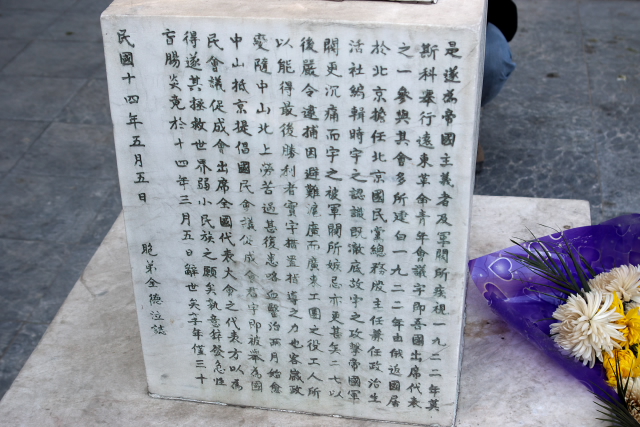 是遂為帝國主義者及軍閥所疾視一九二二年莫
斯科舉行遠東革命青年會議宇即吾國出席代表
之一參與其會多所建白一九二二年由俄返國居
於北京擔任北京國民黨總務股主任兼任政治生
活社編輯時宇之認識既澈底故宇之攻擊帝國軍
閥更沉痛而宇之被軍閥所嫉忌亦更甚矣二七以
後嚴令逮捕因避難滬廣而廣東工團之役工人所
以能得最後勝利者實宇擘畫指導之力也客歲政
變隨中山北上勞苦過甚復患咯血醫治兩月始愈
中山抵京提倡國民會議促成會宇即被舉為國
民會議促成會出席全國代表大會之代表方以為
得遂其拯救世界弱小民族之願矣孰意猝發急性
盲腸炎竟於十四年三月五日辭世矣宇年僅三十
民國十四年五月五日
胞弟全德泣誌